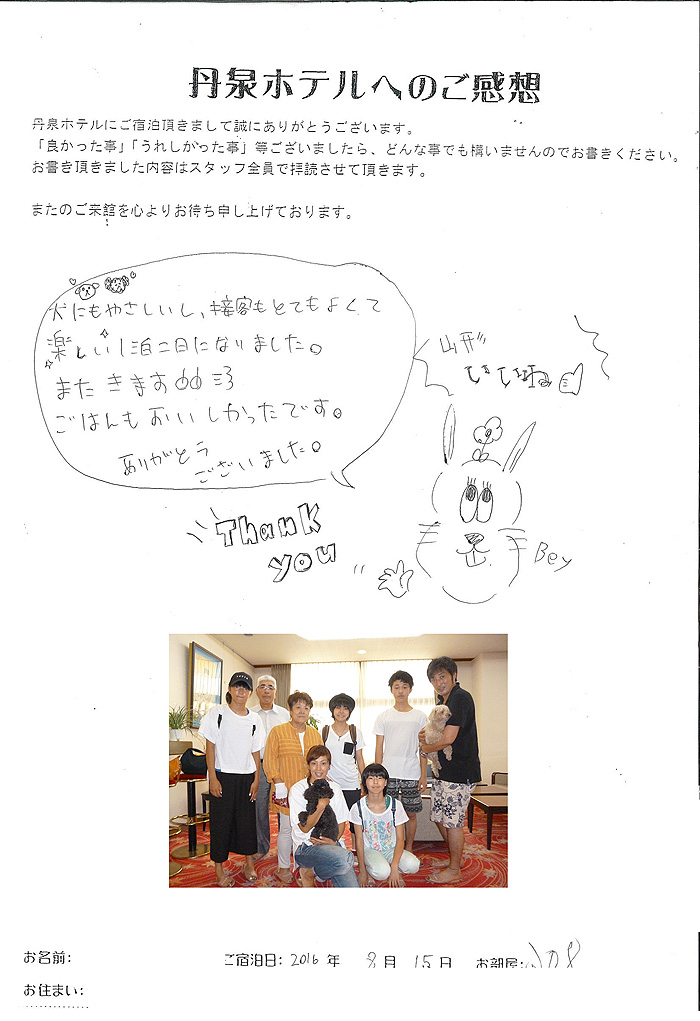 丹泉ホテルへのご感想
丹泉ホテルにご宿泊頂きまして誠にありがとうございます。
「良かった事」「うれしかった事」等ございましたら、どんな事でも構いませんのでお書きください。
お書き頂きました内容はスタッフ全員で拝読させて頂きます。
またのご来館を心よりお待ち申し上げております。
犬にもやさしいし、接客もとてもよくて
楽しい1泊二日になりました。
またきます
ごはんもおいしかったです。
ありがとう
ございました。
山形
いいね
Thank
you
Bey
お名前:
ご宿泊日: 2016 年 8月 15日 お部屋:
お住まい: